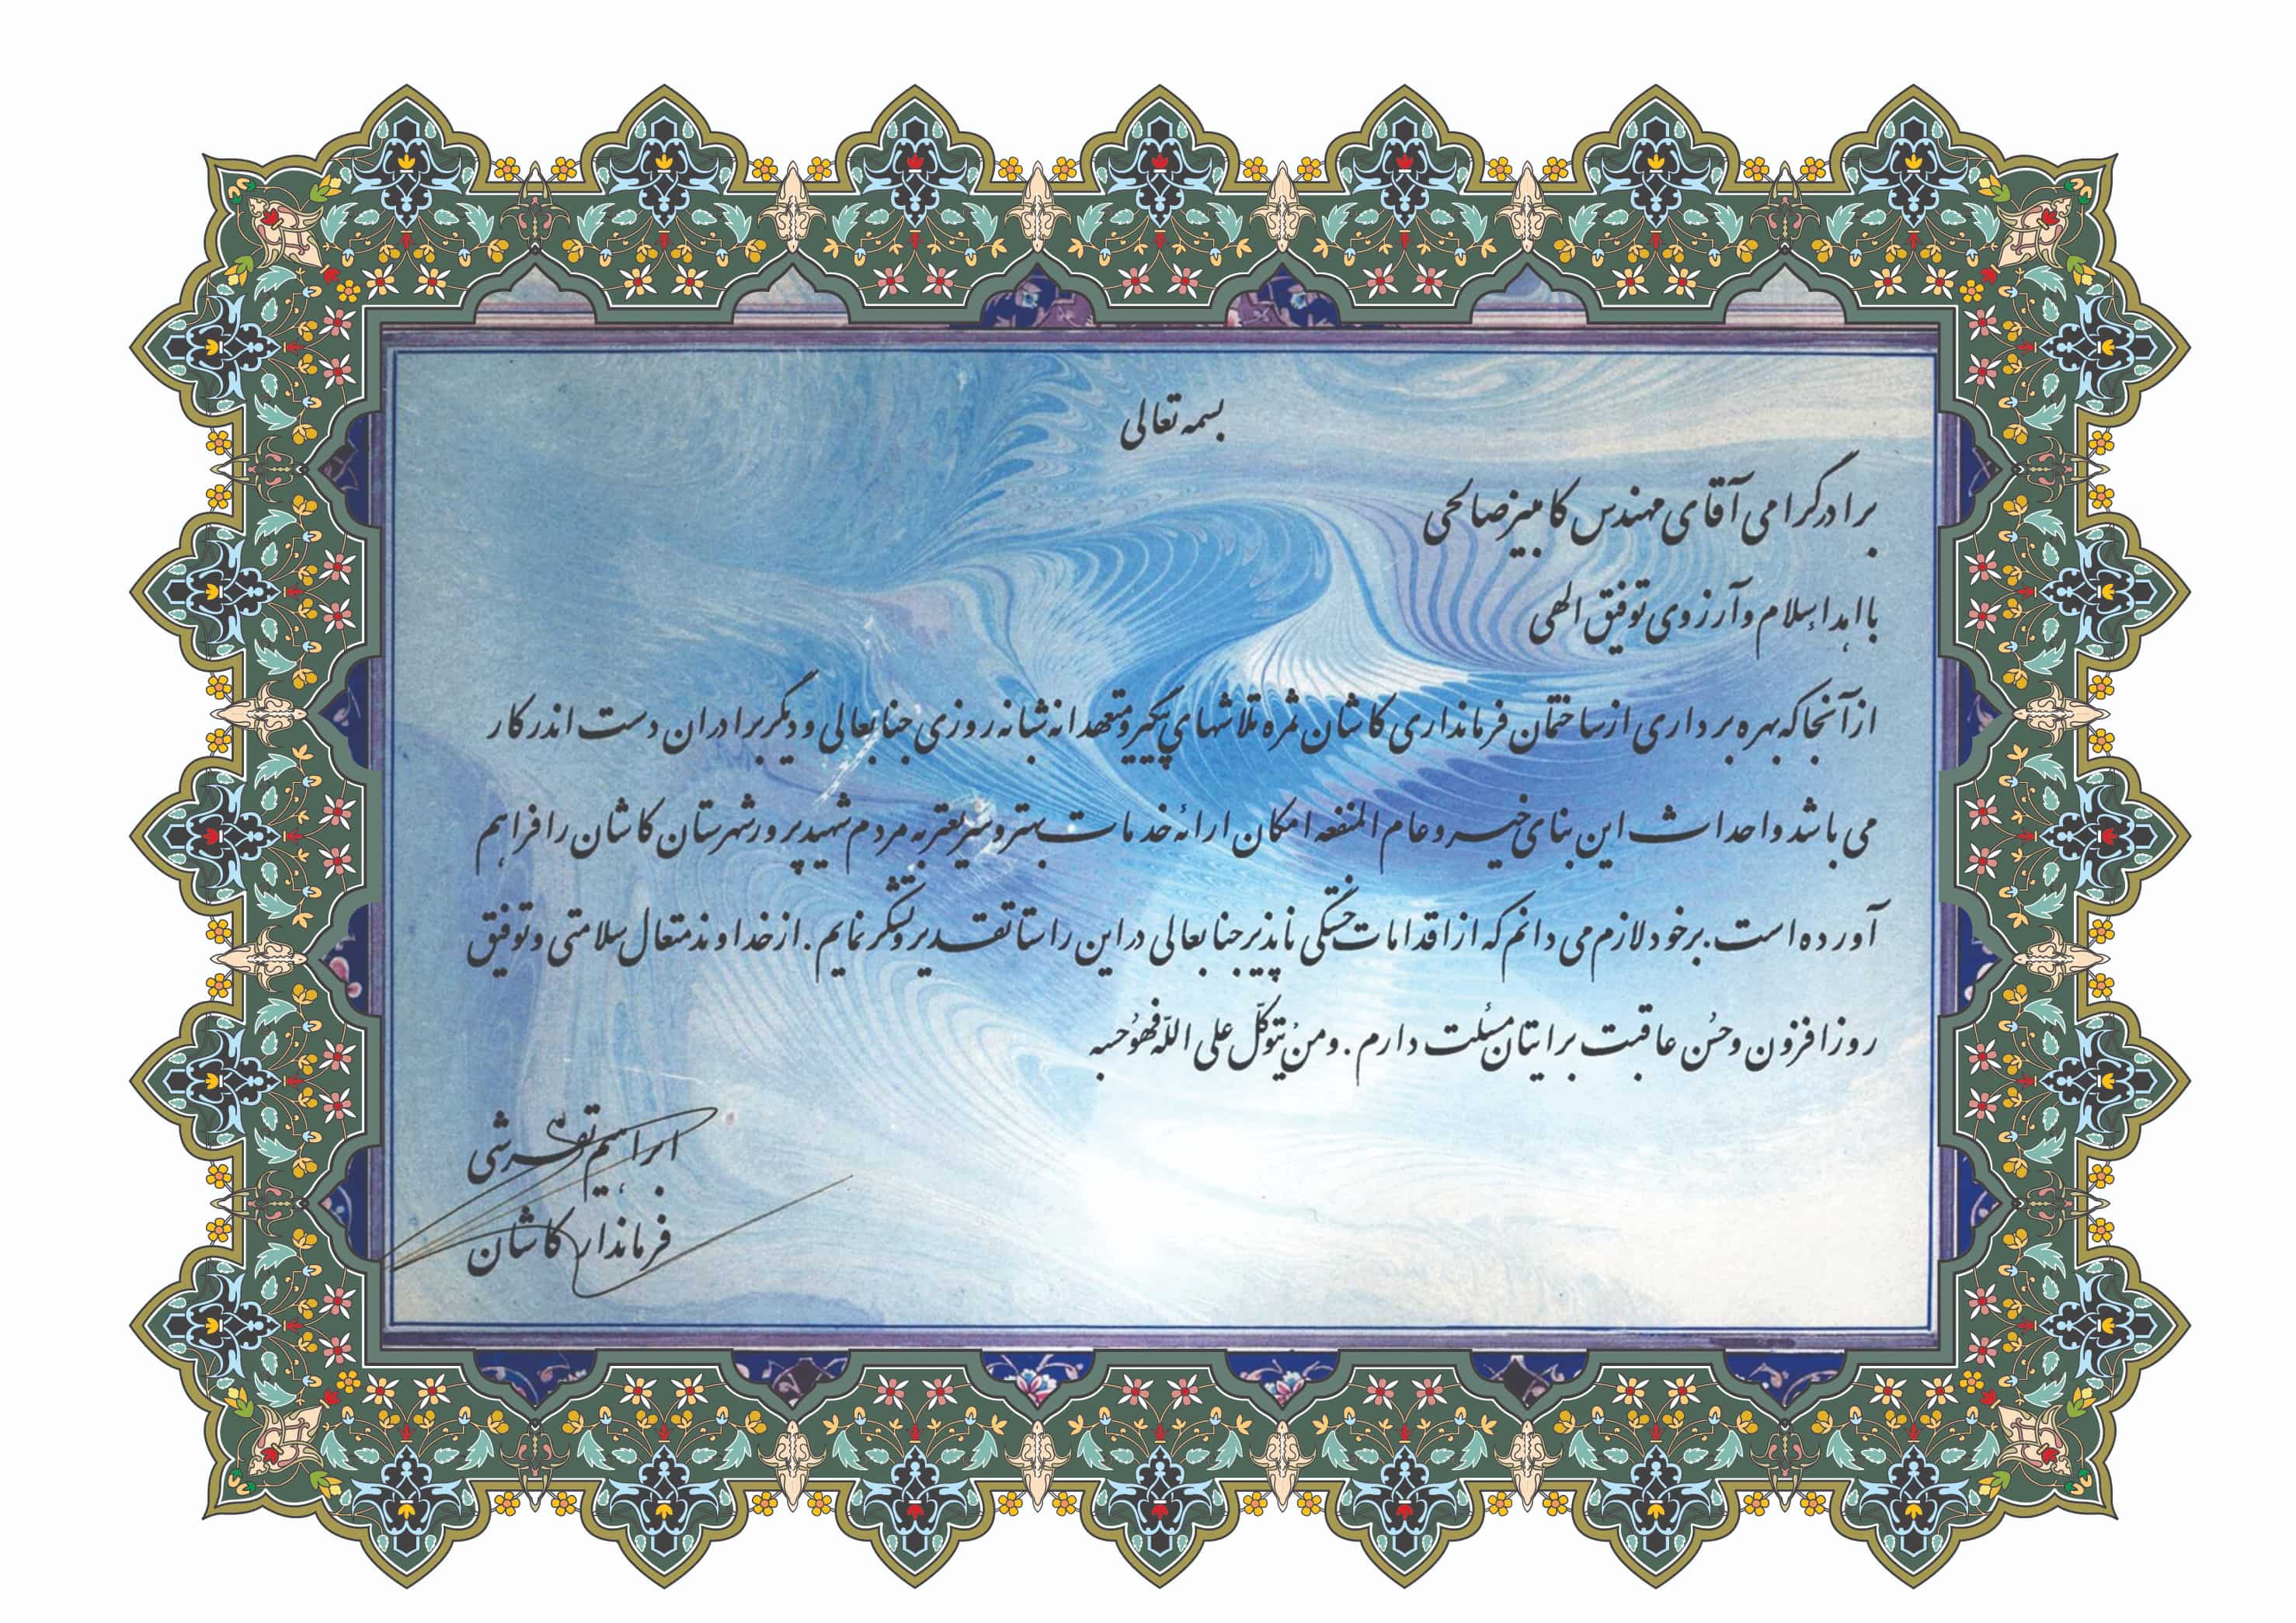 بسمه تعالی
برادر گرامی آقای مهندس کامبیز صالحی
با اهداء سلام و آرزوی توفیق الهی
از آنجا که بهره برداری از ساختمان فرمانداری کاشان ثمره تلاشهای پیگیر و متعهدانه شبانه روزی جنابعالی و دیگر برادران دست اندر کار
می باشد و احداث این بنای خیر و عام المنفعه امکان ارائه خدمات بهتر و سریعتر به مردم شهید پرور شهرستان کاشان را فراهم
آورده است. بر خود لازم می دانم که از اقدامات خستگی ناپذیر جنابعالی در این راستا تقدیر و تشکر نمایم. از خداوند متعال سلامتی و توفیق
روز افزون و حُسن عاقبت برایتان مسئلت دارم. ومنْ یتوکّل علی اللّه فهُوَ حسبه
ابراهیم تفرشی
فرماندار کاشان